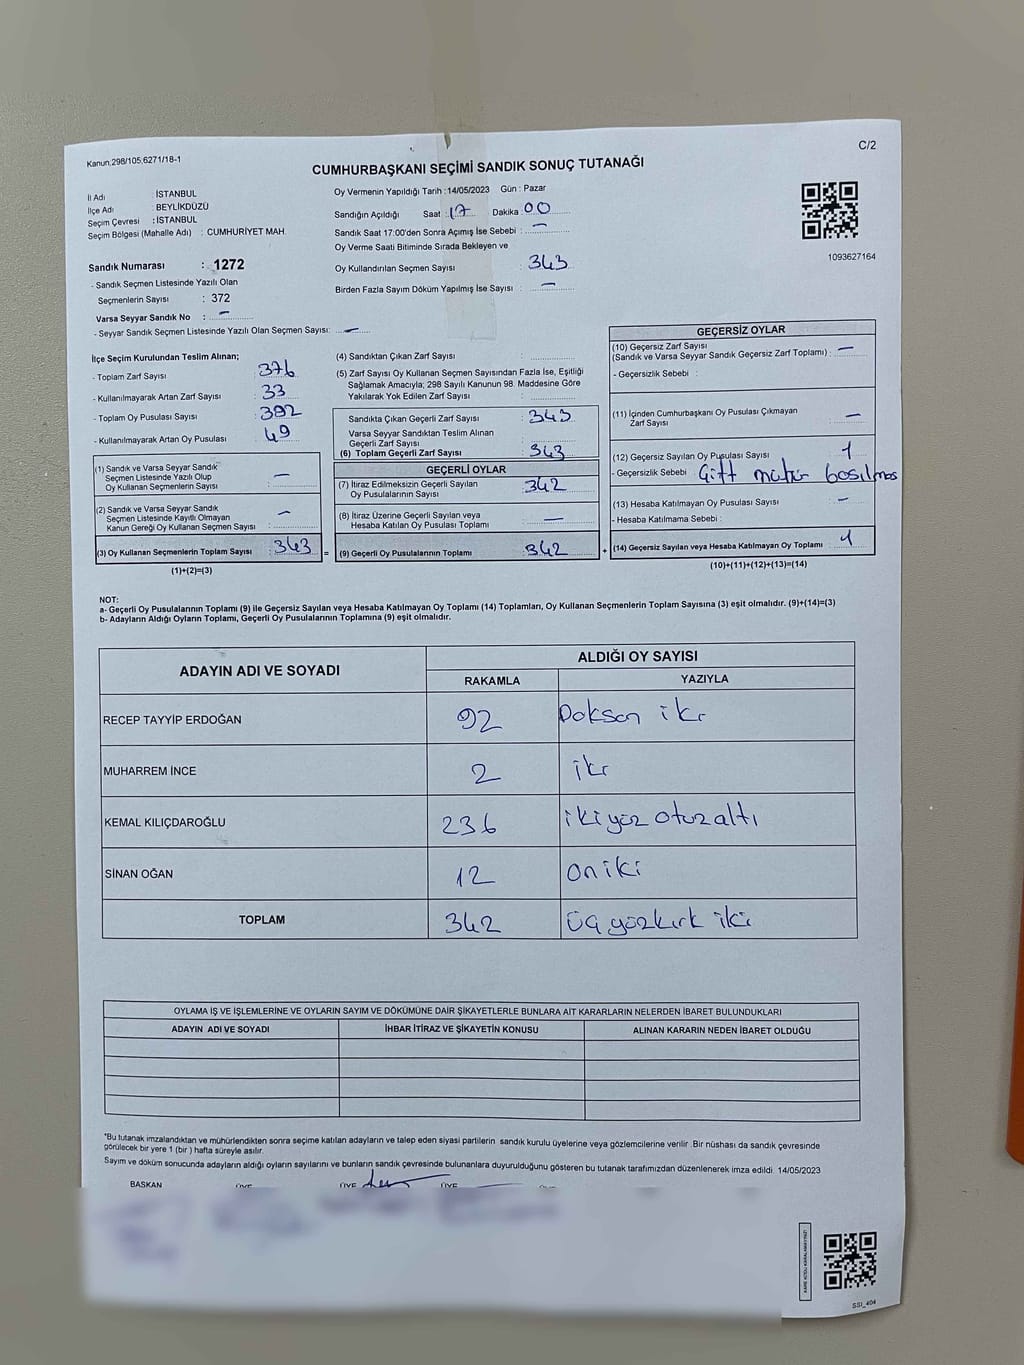 Kanun:298/105;6271/18-1
C/2
CUMHURBAŞKANI SEÇİMİ SANDIK SONUÇ TUTANAĞI
İl Adı : İSTANBUL
İlçe Adı : BEYLİKDÜZÜ
Seçim Çevresi : İSTANBUL
Seçim Bölgesi (Mahalle Adı) : CUMHURİYET MAH.
Sandık Numarası : 1272
- Sandık Seçmen Listesinde Yazılı Olan
Seçmenlerin Sayısı : 372
Varsa Seyyar Sandık No : –
- Seyyar Sandık Seçmen Listesinde Yazılı Olan Seçmen Sayısı: –
Oy Vermenin Yapıldığı Tarih :14/05/2023 Gün : Pazar
Sandığın Açıldığı Saat : 17 Dakika : 00
Sandık Saat 17:00'den Sonra Açımış İse Sebebi : –
Oy Verme Saati Bitiminde Sırada Bekleyen ve
Oy Kullandırılan Seçmen Sayısı 343
Birden Fazla Sayım Döküm Yapılmış İse Sayısı : –
1093627164
İlçe Seçim Kurulundan Teslim Alınan;
- Toplam Zarf Sayısı : 376
- Kullanılmayarak Artan Zarf Sayısı : 33
- Toplam Oy Pusulası Sayısı : 392
- Kullanılmayarak Artan Oy Pusulası : 49
(1) Sandık ve Varsa Seyyar Sandık
Seçmen Listesinde Yazılı Olup
Oy Kullanan Seçmenlerin Sayısı : –
(2) Sandık ve Varsa Seyyar Sandık
Seçmen Listesinde Kayıtlı Olmayan
Kanun Gereği Oy Kullanan Seçmen Sayısı : –
(3) Oy Kullanan Seçmenlerin Toplam Sayısı : 343
(1)+(2)=(3)
(4) Sandıktan Çıkan Zarf Sayısı :
(5) Zarf Sayısı Oy Kullanan Seçmen Sayısından Fazla İse, Eşitliği
Sağlamak Amacıyla; 298 Sayılı Kanunun 98. Maddesine Göre
Yakılarak Yok Edilen Zarf Sayısı :
Sandıkta Çıkan Geçerli Zarf Sayısı : 343
Varsa Seyyar Sandıktan Teslim Alınan
Geçerli Zarf Sayısı :
(6) Toplam Geçerli Zarf Sayısı : 343
GEÇERLİ OYLAR
(7) İtiraz Edilmeksizin Geçerli Sayılan
Oy Pusulalarının Sayısı : 342
(8) İtiraz Üzerine Geçerli Sayılan veya
Hesaba Katılan Oy Pusulası Toplamı : –
= (9) Geçerli Oy Pusulalarının Toplamı : 342
GEÇERSİZ OYLAR
(10) Geçersiz Zarf Sayısı
(Sandık ve Varsa Seyyar Sandık Geçersiz Zarf Toplamı) : –
- Geçersizlik Sebebi :
(11) İçinden Cumhurbaşkanı Oy Pusulası Çıkmayan
Zarf Sayısı : –
(12) Geçersiz Sayılan Oy Pusulası Sayısı : 1
- Geçersizlik Sebebi : Çift mühür basılmas
(13) Hesaba Katılmayan Oy Pusulası Sayısı : –
- Hesaba Katılmama Sebebi :
+ (14) Geçersiz Sayılan veya Hesaba Katılmayan Oy Toplamı : 1
(10)+(11)+(12)+(13)=(14)
NOT:
a- Geçerli Oy Pusulalarının Toplamı (9) ile Geçersiz Sayılan veya Hesaba Katılmayan Oy Toplamı (14) Toplamları, Oy Kullanan Seçmenlerin Toplam Sayısına (3) eşit olmalıdır. (9)+(14)=(3)
b- Adayların Aldığı Oyların Toplamı, Geçerli Oy Pusulalarının Toplamına (9) eşit olmalıdır.
ADAYIN ADI VE SOYADI
ALDIĞI OY SAYISI
RAKAMLA YAZIYLA
RECEP TAYYİP ERDOĞAN 92 Doksan iki
MUHARREM İNCE 2 iki
KEMAL KILIÇDAROĞLU 236 ikiyüz otuzaltı
SİNAN OĞAN 12 oniki
TOPLAM 342 üçyüzkırk iki
OYLAMA İŞ VE İŞLEMLERİNE VE OYLARIN SAYIM VE DÖKÜMÜNE DAİR ŞİKAYETLERLE BUNLARA AİT KARARLARIN NELERDEN İBARET BULUNDUKLARI
ADAYIN ADI VE SOYADI İHBAR İTİRAZ VE ŞİKAYETİN KONUSU ALINAN KARARIN NEDEN İBARET OLDUĞU
*Bu tutanak imzalandıktan ve mühürlendikten sonra seçime katılan adayların ve talep eden siyasi partilerin sandık kurulu üyelerine veya gözlemcilerine verilir .Bir nüshası da sandık çevresinde
görülecek bir yere 1 (bir ) hafta süreyle asılır.
Sayım ve döküm sonucunda adayların aldığı oyların sayılarını ve bunların sandık çevresinde bulunanlara duyurulduğunu gösteren bu tutanak tarafımızdan düzenlenerek imza edildi. 14/05/2023
BAŞKAN ÜYE ÜYE ÜYE
SSI_404